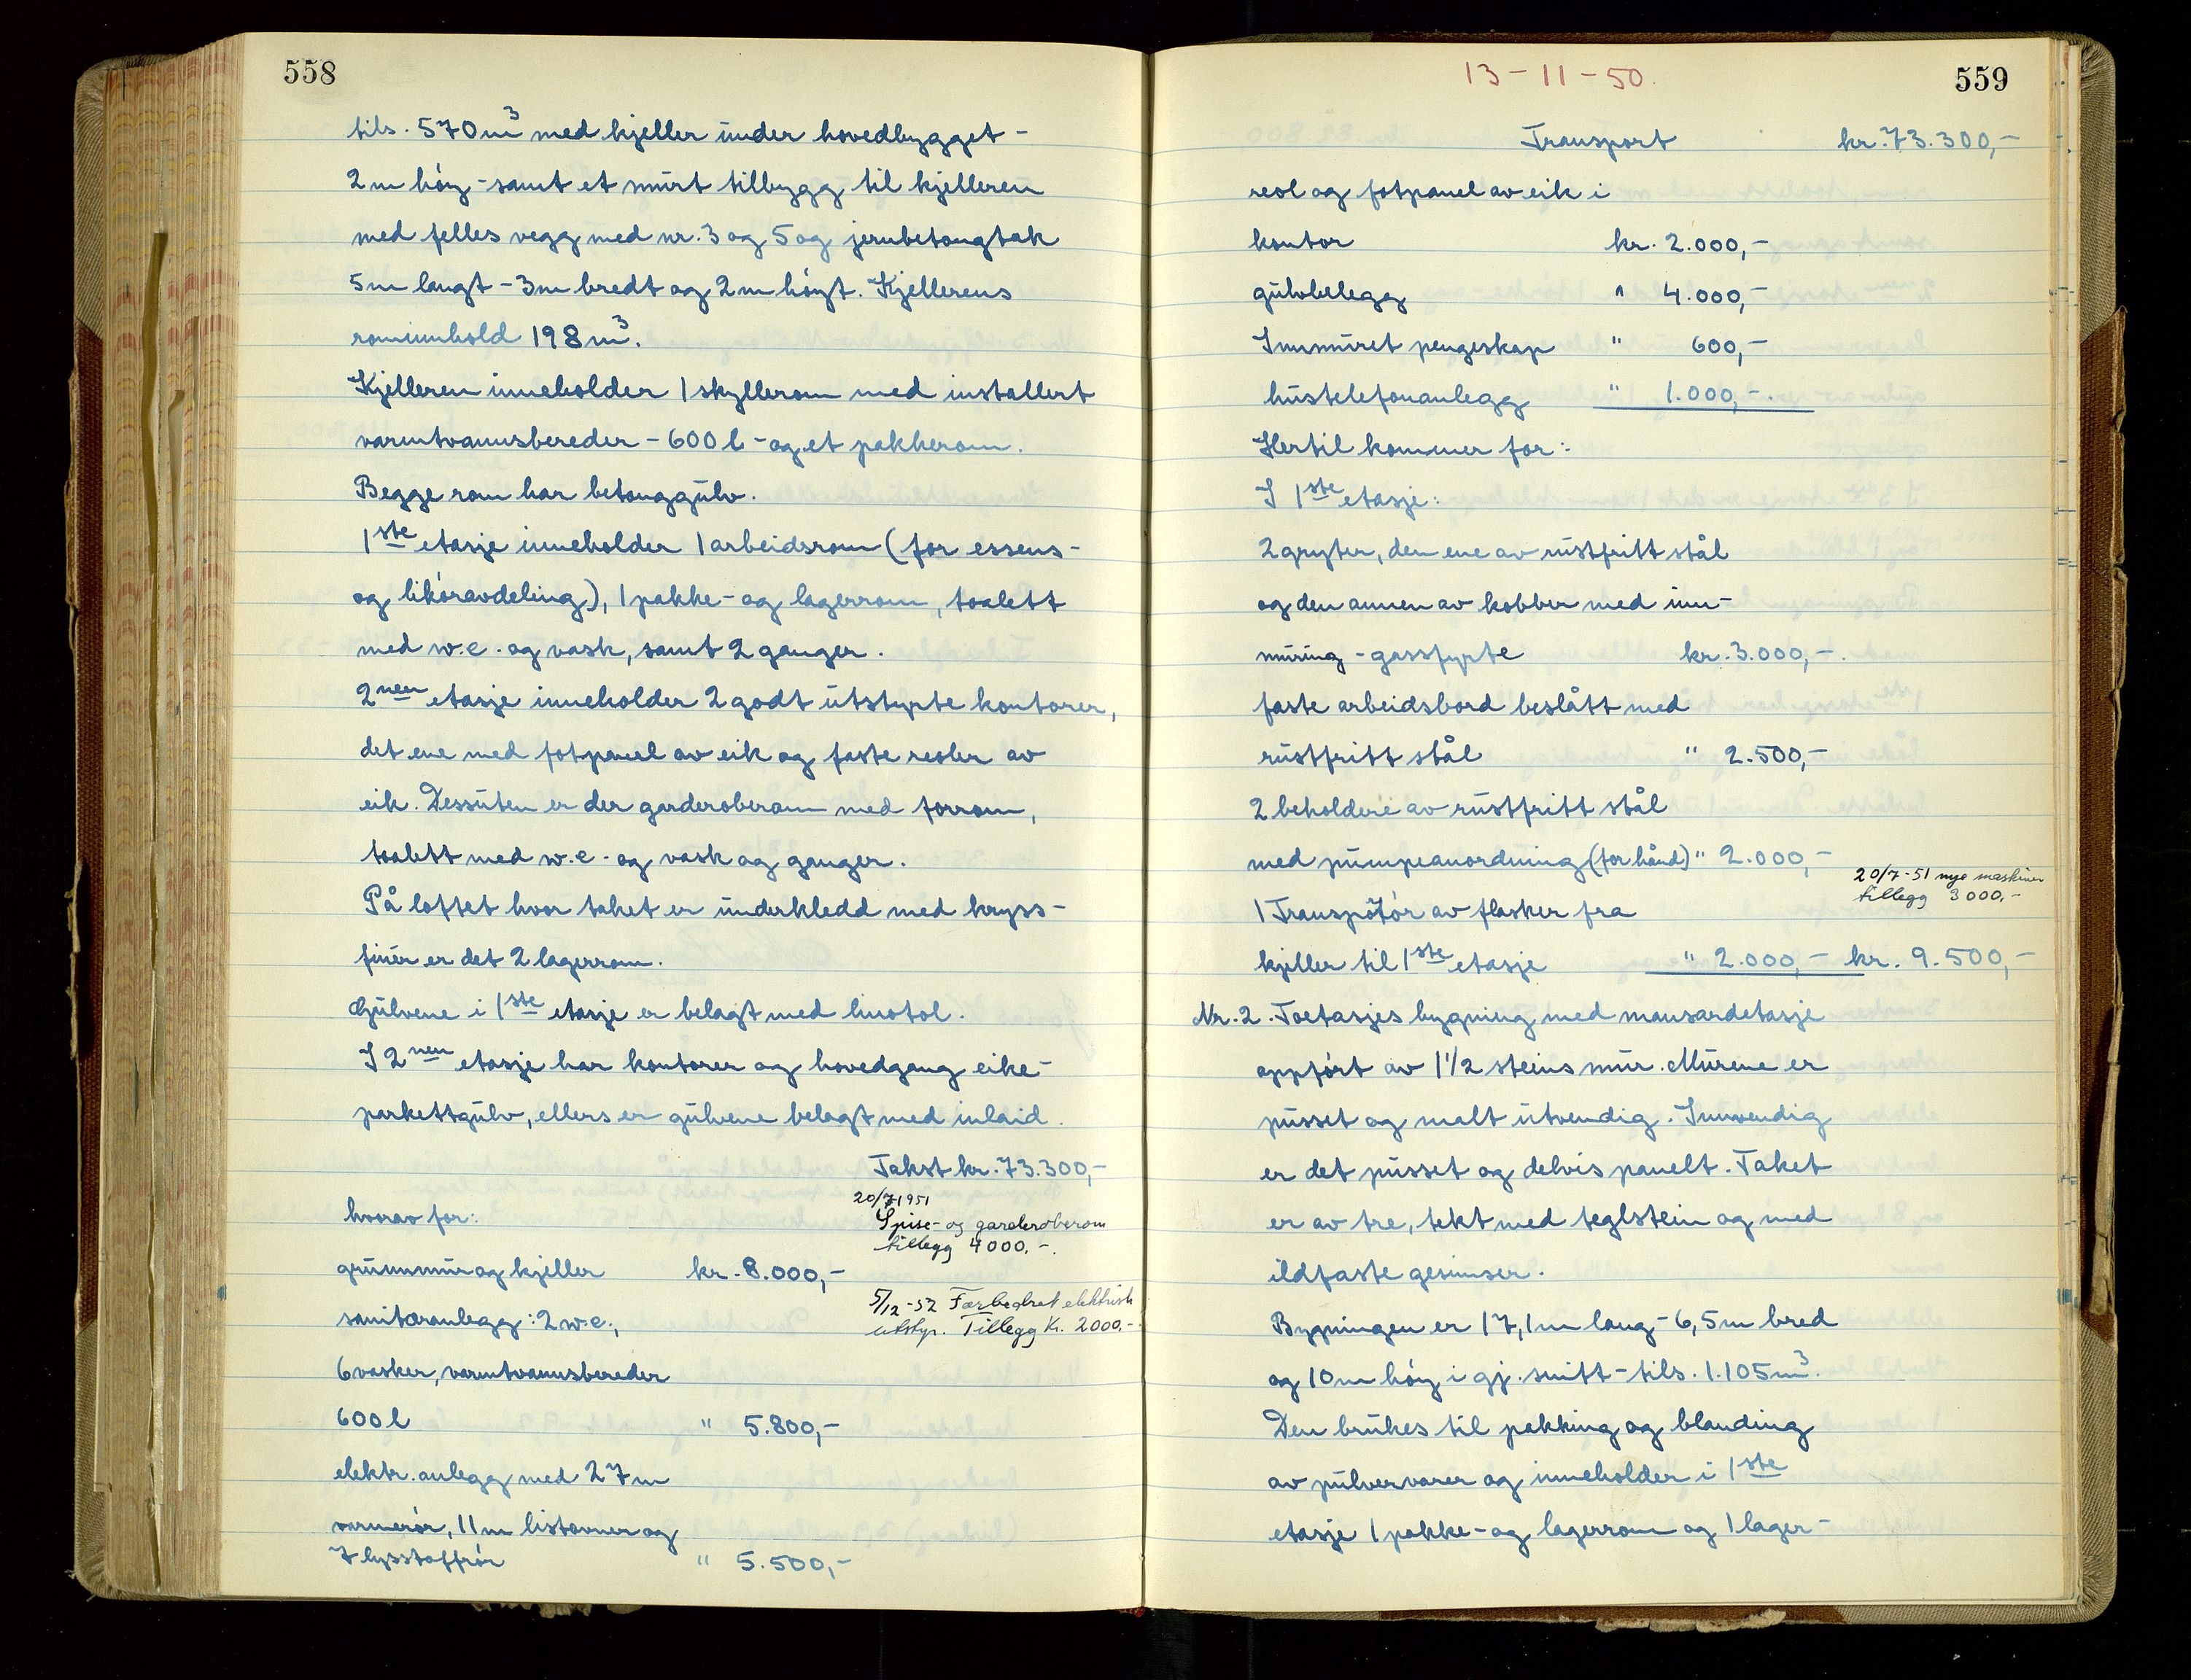 558
tils. 570 m³ med kjeller under hovedbygget -
2 m höy - samt et murt tilbygg til kjelleren
med felles vegg med nr. 3 og 5 og jernbetongtak
5 m langt - 3 m bredt og 2 m höyt. Kjellerens
rominnhold 198 m³.
Kjelleren inneholder 1 skyllerom med installert
varmtvannsbereder - 600 l - og et pakkerom.
Begge rom har betonggulv.
1ste etasje inneholder 1 arbeidsrom (for essens-
og liköravdeling), 1 pakke- og lagerrom, toalett
med w.c. og vask, samt 2 ganger.
2nen etasje inneholder 2 godt utstyrte kontorer,
det ene med fotpanel av eik og faste reoler av
eik. Dessuten er der garderoberom med forrom,
toalett med w.c. og vask og ganger.
På loftet hvor taket er underkledd med kryss-
finér er det 2 lagerrom.
Gulvene i 1ste etasje er belagt med linotol.
I 2nen etasje har kontorer og hovedgang eike-
parkettgulv, ellers er gulvene belagt med inlaid.
Takst kr. 73.300,-
20/7 1951
Spise- og garderoberom
tillegg 4000.-.
hvorav for:
grunnmur og kjeller kr. 8.000,-
5/12-52 Forbedret elektrisk
utstyr. Tillegg Kr. 2000.-
sanitæranlegg: 2 w.c.,
6 vasker, varmtvannsbereder
600 l " 5.800,-
elektr. anlegg med 27 m
varmerör, 11 m listovner og
7 lysstoffrör " 5.500,-
13-11-50.
559
Transport kr. 73.300,-
reol og fotpanel av eik i
kontor kr. 2.000,-
gulvbelegg " 4.000,-
Innmuret pengeskap " 600,-
hustelefonanlegg " 1.000,-.
Hertil kommer for:
I 1ste etasje:
2 gryter, den ene av rustfritt stål
og den annen av kobber med inn-
muring - gassfyrte kr. 3.000,-.
faste arbeidsbord beslått med
rustfritt stål " 2.500,-
2 beholdere av rustfritt stål
med pumpeanordning (for hånd) " 2.000,-
20/7-51 nye maskiner
tillegg 3000,-
1 Transpotör av flasker fra
kjeller til 1ste etasje " 2.000,- kr. 9.500,-
Nr. 2. Toetasjes bygning med mansardetasje
oppfört av 1 1/2 steins mur. Murene er
pusset og malt utvendig. Innvendig
er det pusset og delvis panelt. Taket
er av tre, tekt med teglstein og med
ildfaste gesimser.
Bygningen er 17,1 m lang - 6,5 m bred
og 10 m höy i gj. snitt - tils. 1.105 m³.
Den brukes til pakking og blanding
av pulvervarer og inneholder i 1ste
etasje 1 pakke- og lagerrom og 1 lager-